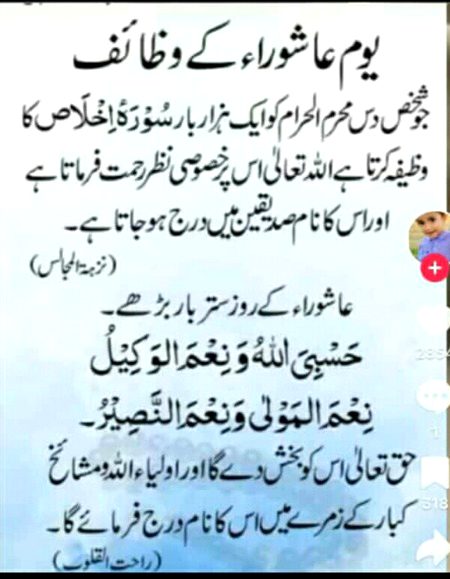 یوم عاشوراء کے وظائف
جو شخص دس محرم الحرام کو ایک ہزار بار سُوْرَۃُ اِخْلَاص کا
وظیفہ کرتا ہے اللہ تعالیٰ اس پر خصوصی نظر رحمت فرماتا ہے
اور اس کا نام صدیقین میں درج ہو جاتا ہے۔
(نزہۃ المجالس)
عاشوراء کے روز ستر بار پڑھے۔
حَسْبِیَ اللّٰہُ وَنِعْمَ الْوَکِیْلُ
نِعْمَ الْمَوْلٰی وَنِعْمَ النَّصِیْرُ۔
حق تعالیٰ اس کو بخش دے گا اور اولیاء اللہ و مشائخ
کبار کے زمرے میں اس کا نام درج فرمائے گا۔
(راحت القلوب)
1
318